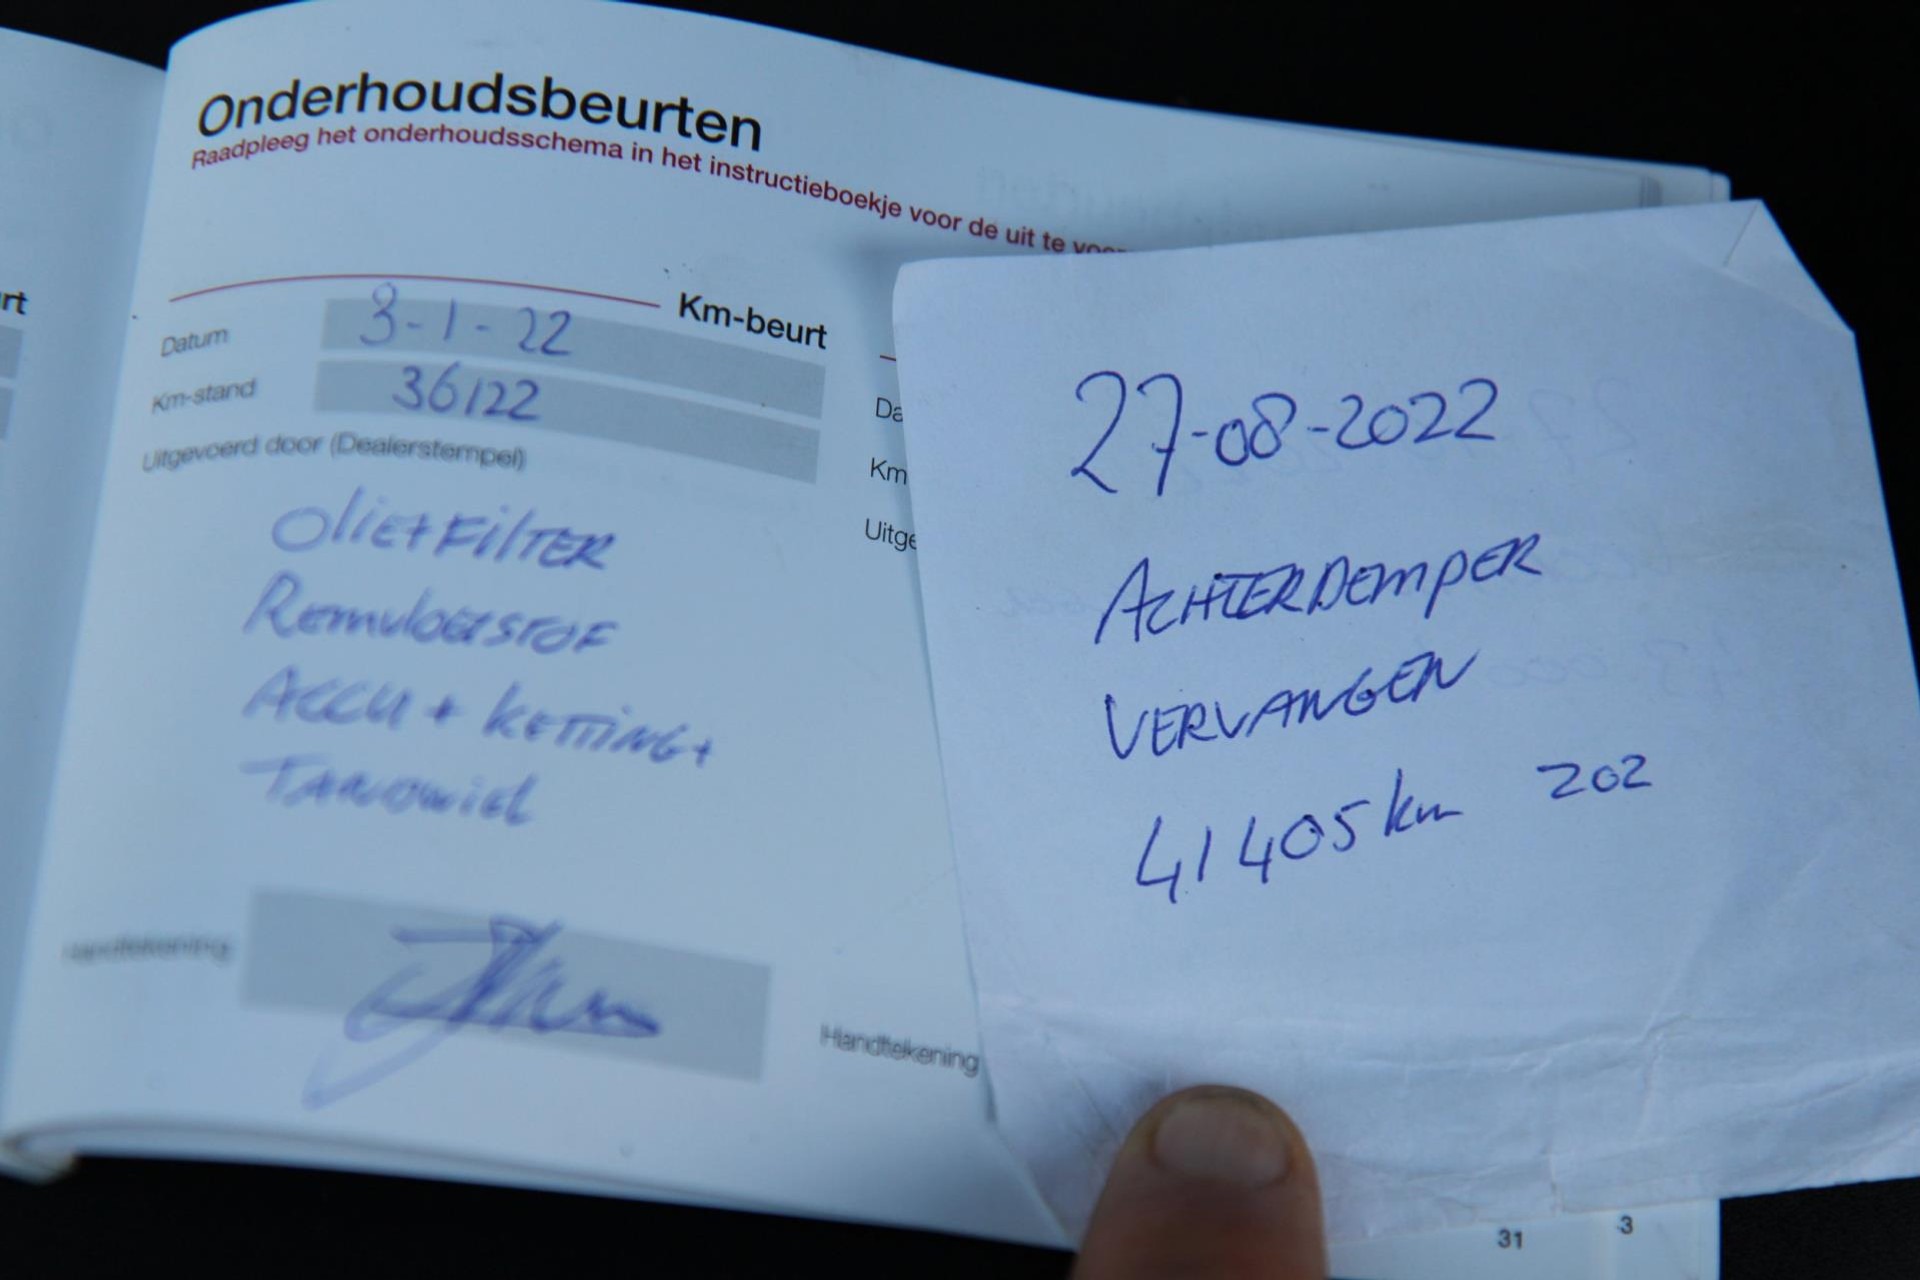 Onderhoudsbeurten
Raadpleeg het onderhoudsschema in het instructieboekje voor de uit te voer
rt
Km-beurt
Datum 3-1-22
Km-stand 36122
Uitgevoerd door (Dealerstempel)
Olie+Filter
Remvloeistof
Accu + Ketting+
Tandwiel
Handtekening
Da
Km
Uitge
Handtekening
27-08-2022
ACHTERDEMPER
VERVANGEN
41405 km 202
31 3